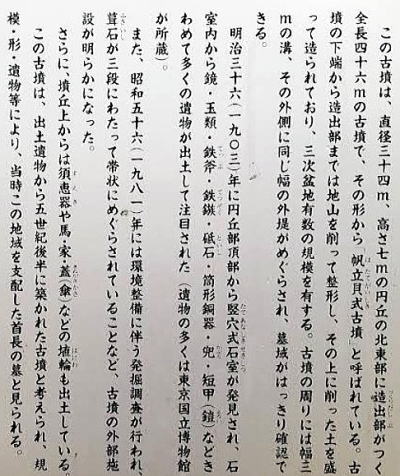 この古墳は、直径三十四m、高さ七mの円丘の北東部に造出部がつく
全長四十六mの古墳で、その形から「帆立貝式古墳」と呼ばれている。古
墳の下端から造出部までは地山を削って整形し、その上に削った土を盛
って造られており、三次盆地有数の規模を有する。古墳の周りには幅三
mの溝、その外側に同じ幅の外堤がめぐらされ、墓域がはっきり確認で
きる。
明治三十六(一九〇三)年に円丘部頂部から竪穴式石室が発見され、石
室内から鏡・玉類・鉄斧・鉄鏃・砥石・筒形銅器・兜・短甲(鎧)などき
わめて多くの遺物が出土して注目された(遺物の多くは東京国立博物館
が所蔵)。
また、昭和五十六(一九八一)年には環境整備に伴う発掘調査が行われ、
葺石が三段にわたって帯状にめぐらされていることなど、古墳の外部施
設が明らかになった。
さらに、墳丘上からは須恵器や馬・家・蓋(傘)などの埴輪も出土している。
この古墳は、出土遺物から五世紀後半に築かれた古墳と考えられ、規
模・形・遺物等により、当時この地域を支配した首長の墓と見られる。